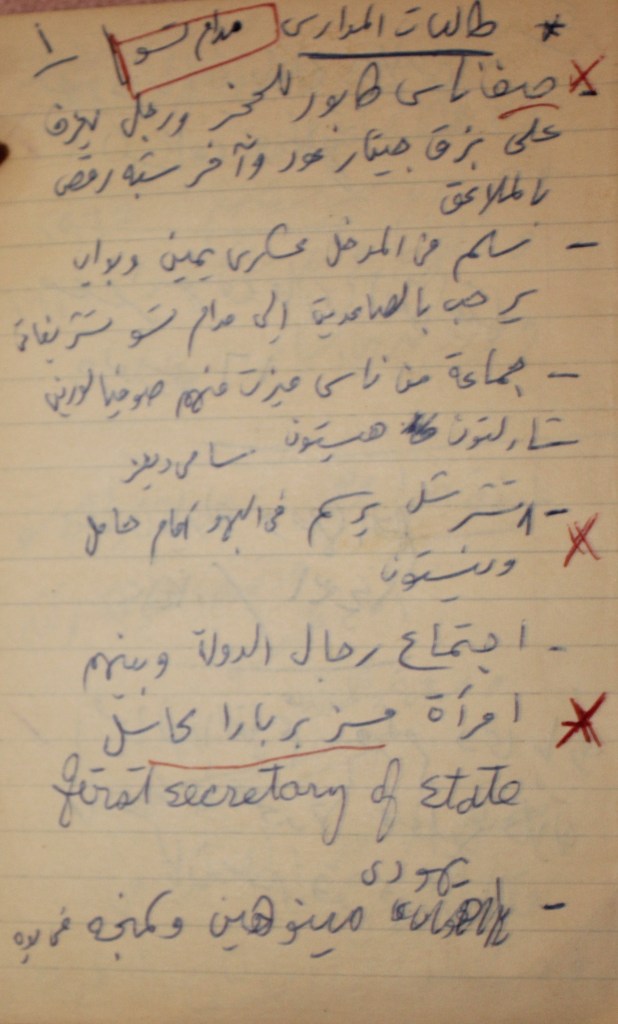 * طالبات المدارس مدام تسو ١
- صفا ناس طابور للخبز ورجل يعزف
على بزق جيتار عود وآخر ستة رقص
بالملاعق
- سلم من المدخل عسكرى يمين وبواب
يرحب بالصاعدين إلى مدام تسو تشريفاتى
- جماعة من ناس ميزت منهم صوفيا لورين
شارلتون هيستون سامى ديفز
- تشرشل يرسم فى البهو أمام حامل
وينستون
- اجتماع رجال الدولة وبينهم
امرأة مسز بربارا كاسل
first secretary of state
يهودى
- مينوهين وكمنجة فى يده